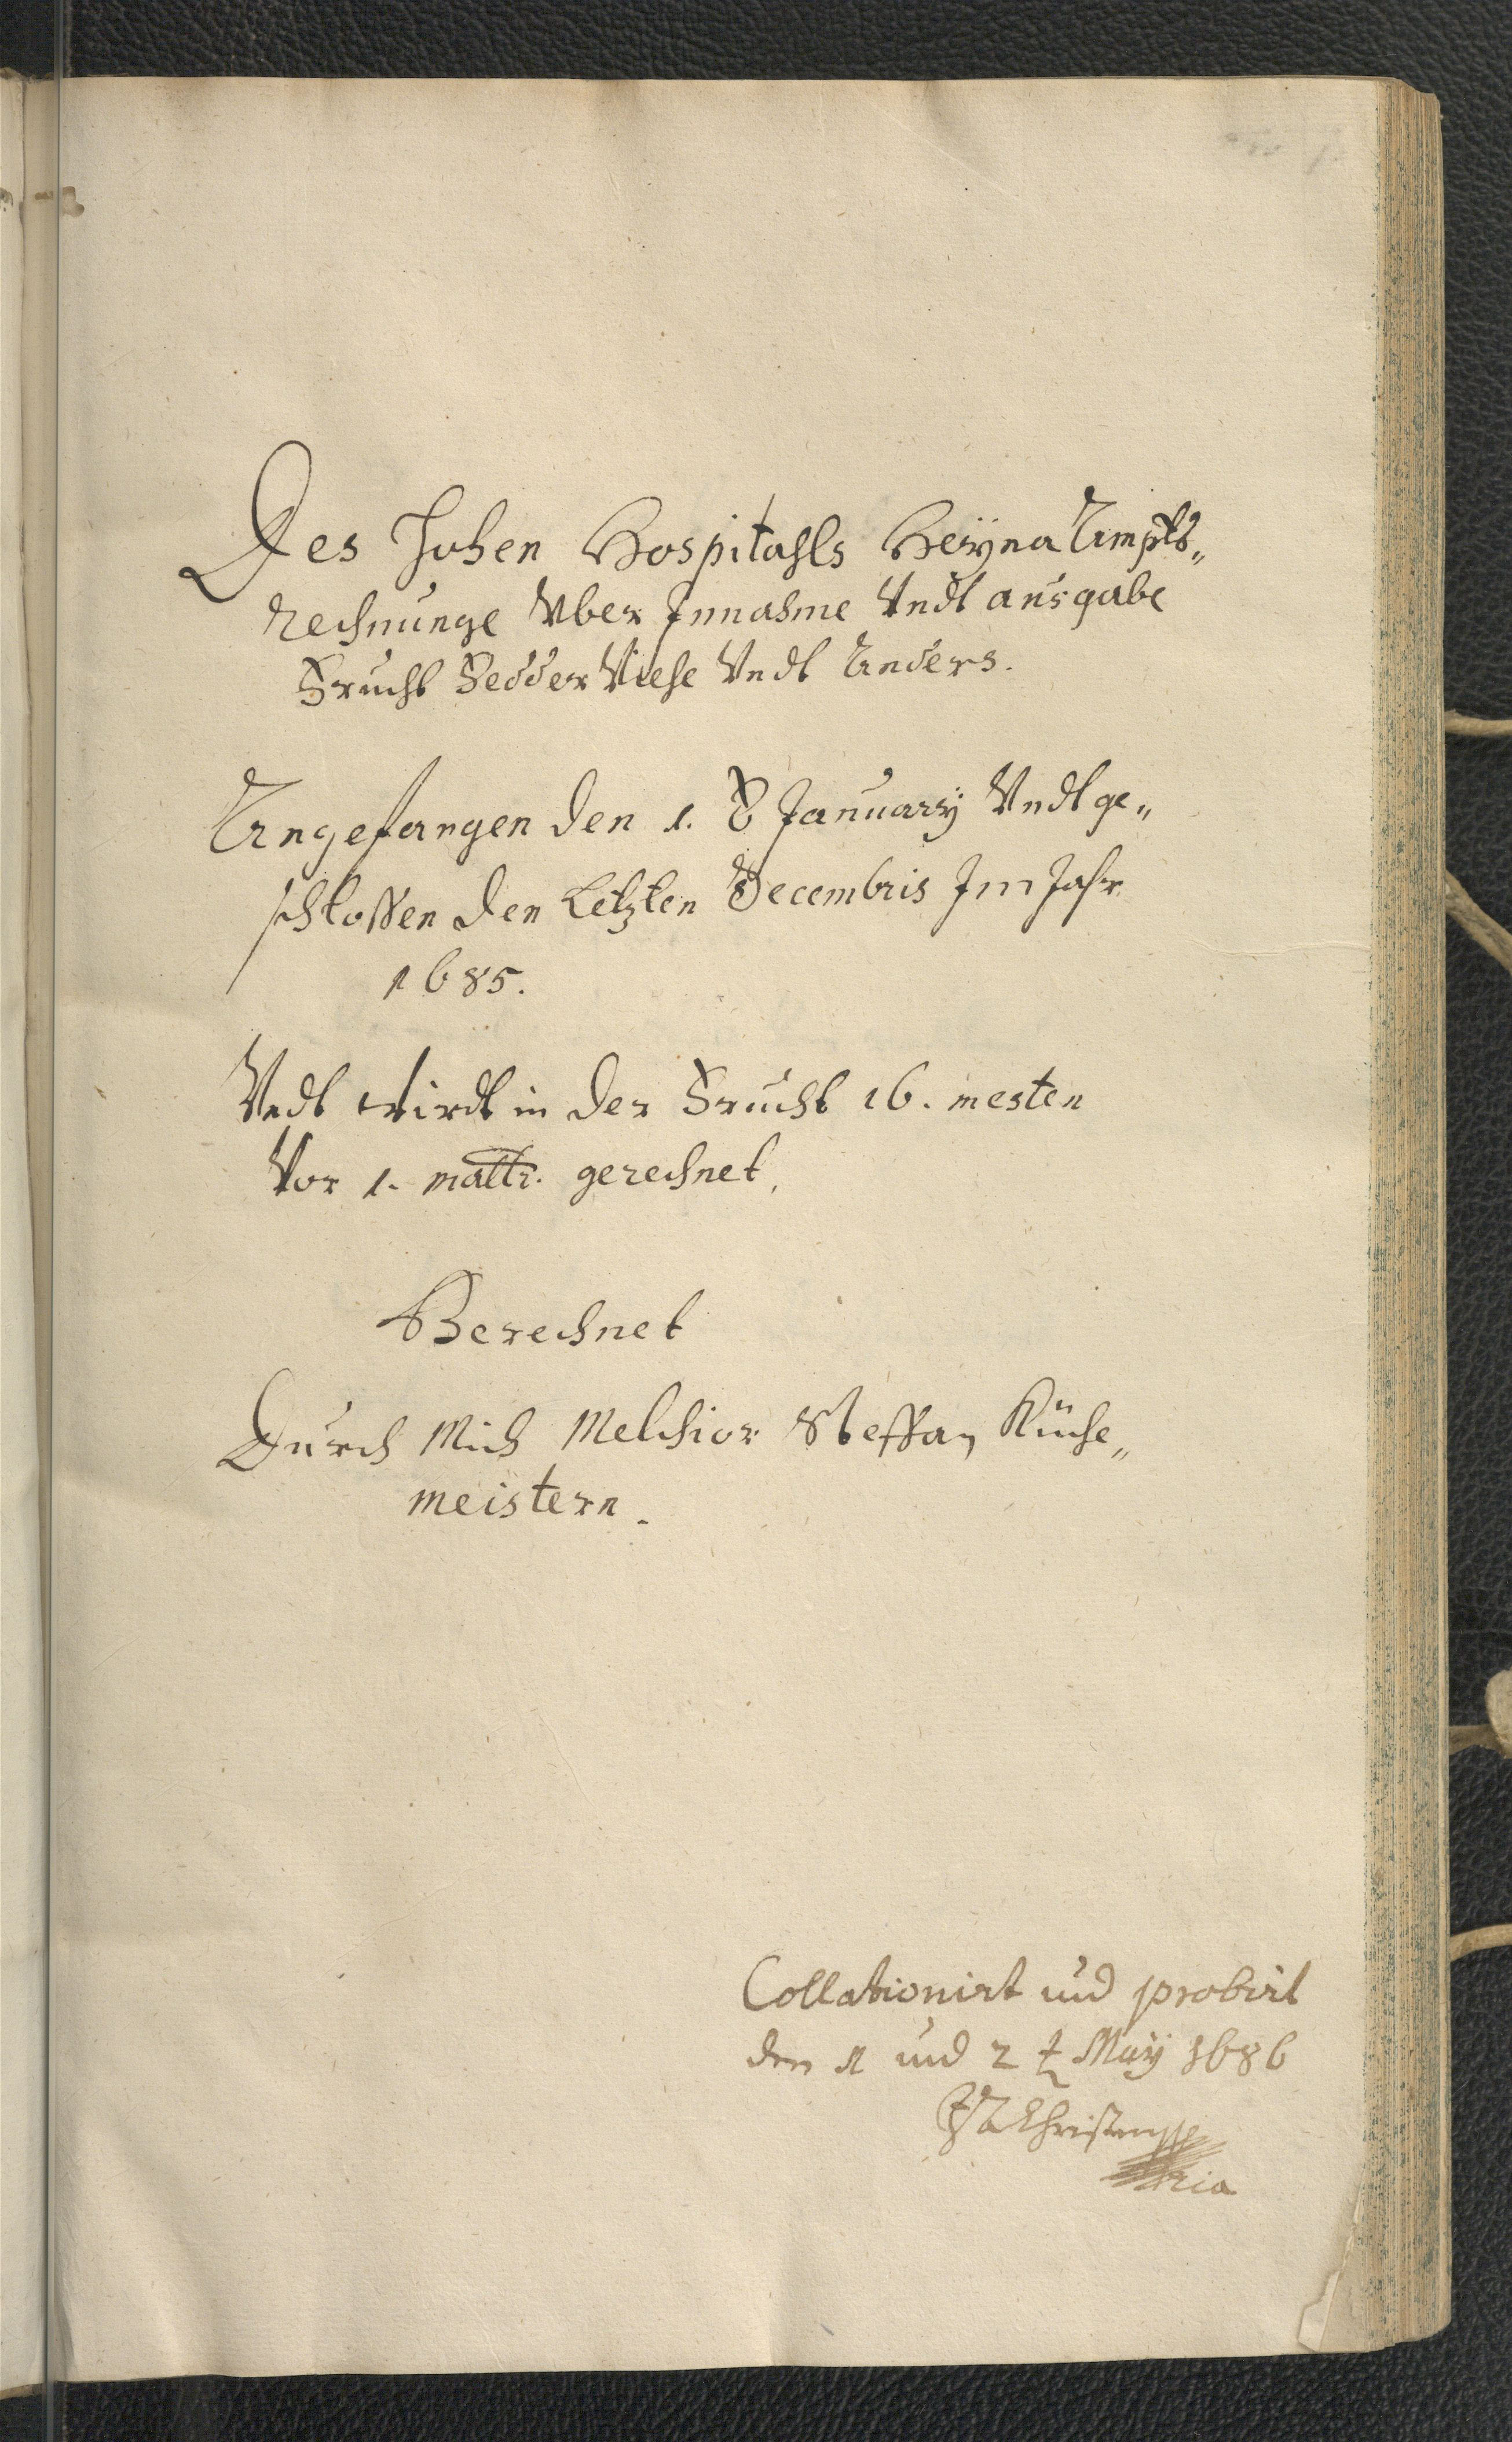 Des Hohen Hospitahls Heÿna Ampts„
rechnunge Vber Innahme Vndt ausgabe
Frucht Fedder Viehe Vndt Anders.
Angefangen den 1. January Vndt ge„
schlossen den Letzten Decembris Im Jahr
1685.
Vndt wirdt in der Frucht 16. mesten
Vor 1. maltr. gerechnet.
Berechnet
Durch Mich Melchior Steffan Küche„
meistern.
Collationirt und probirt
den 1 und 2 t May 1686
Christen